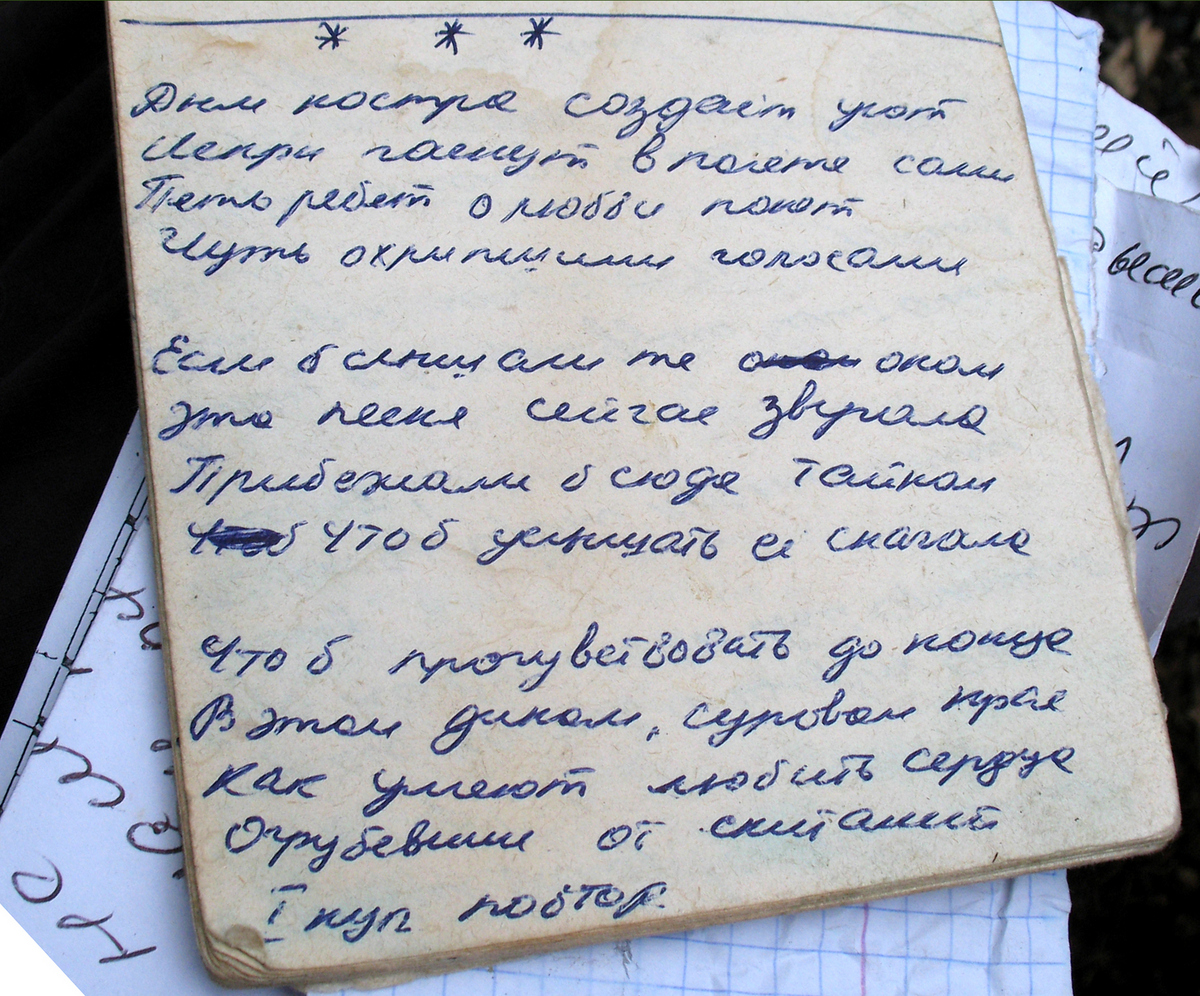 * * *
Дым костра создаёт уют
Искры гаснут в полёте сами
Пять ребят о любви поют
Чуть охрипшими голосами
Если б слышали те о ком
Эта песня сейчас звучала
Прибежали б сюда тайком
Чтоб услышать её сначала
Чтоб прочувствовать до конца
В этом диком, суровом крае
Как умеют любить сердца
Огрубевшие от скитаний
I куп повтор.